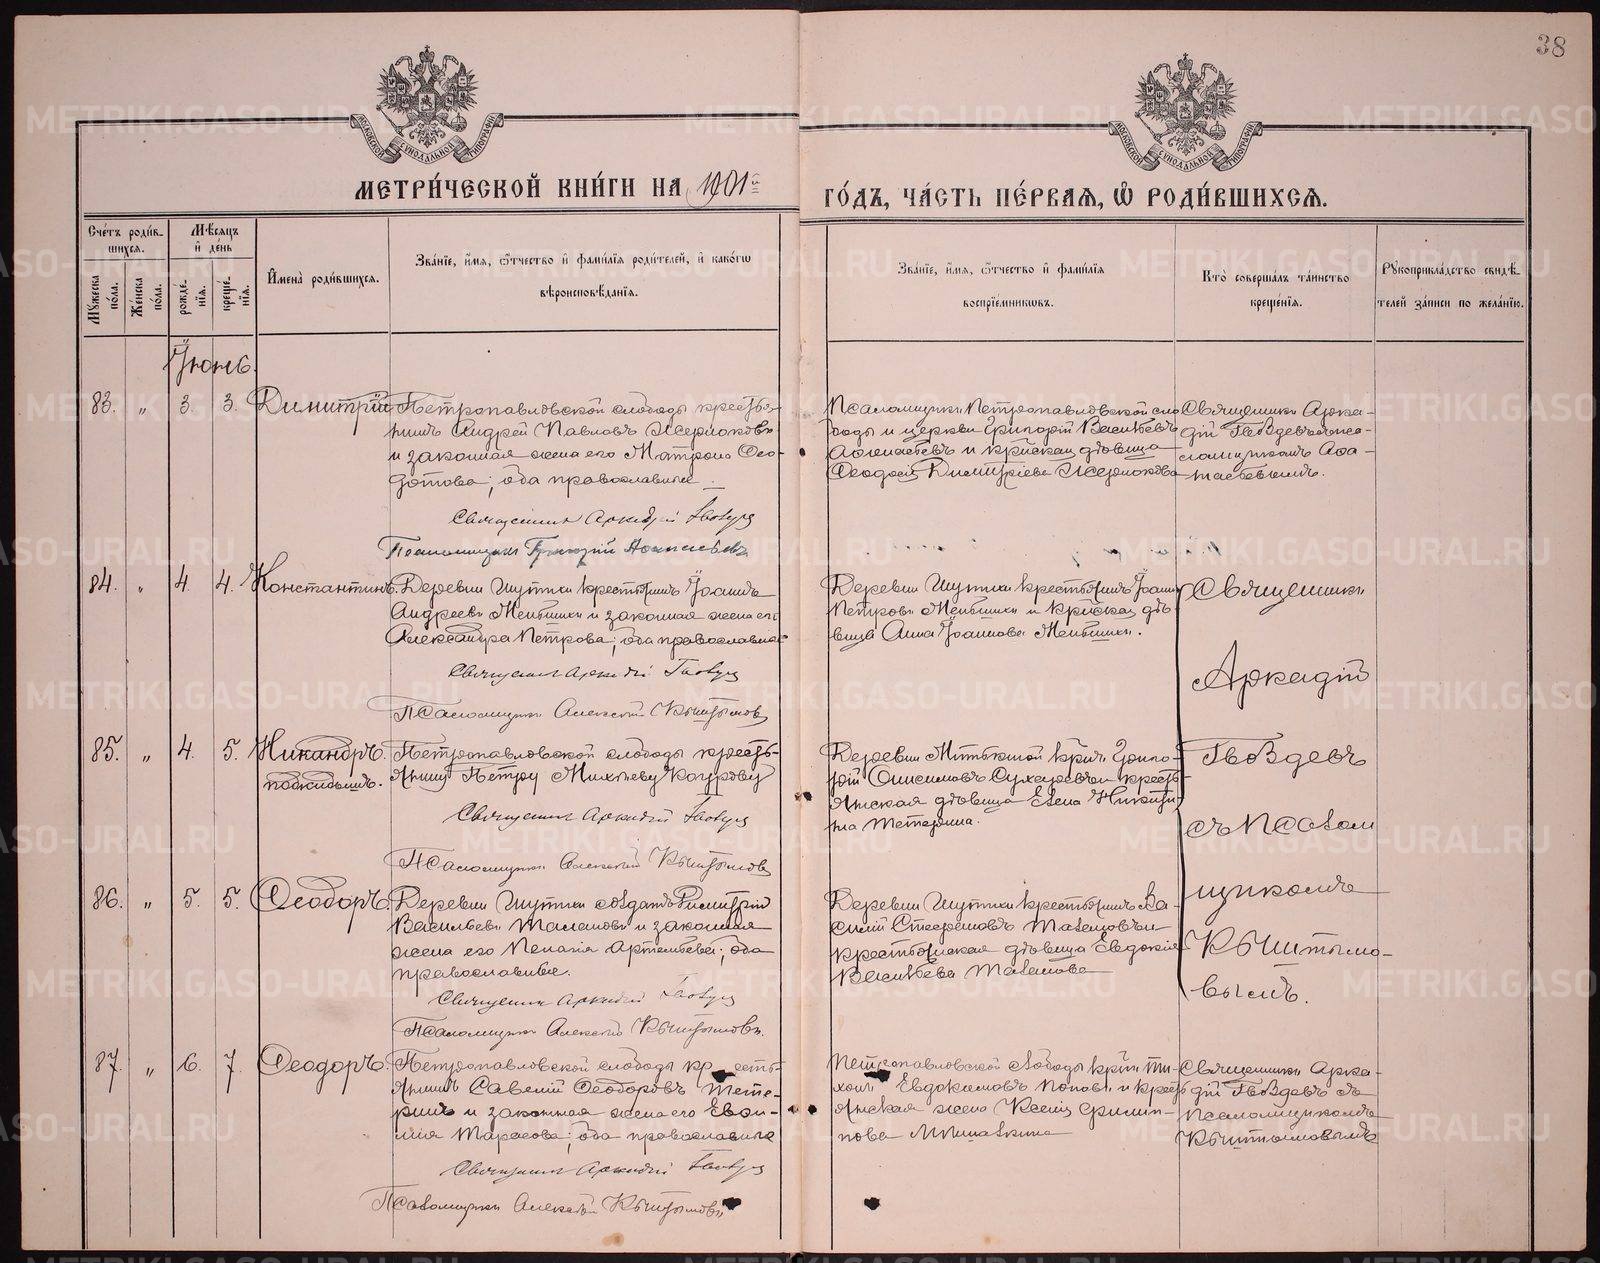 38
МЕТРИ́ЧЕСКОЙ КНИ́ГИ НА 1901й ГО́ДЪ, ЧА́СТЬ ПЕ́РВАЯ, Ѡ РОДИ́ВШИХСЯ.
Сче́тъ роди́в-
шихся.
Мѣ́сяцъ
и де́нь
Имена̀ роди́вшихся.
Зва́нїе, и́мя, ѻ́тчество и фами́лїя роди́телей, и како́гѡ
вѣроисповѣ́данїя.
Зва́нїе, и́мя, ѻ́тчество и фами́лїя
воспрїе́мникѡвъ.
Кто̀ соверша́лъ та́инство
креще́нїя.
Рꙋкоприкла́дство свидѣ́-
телей за́писи по жела́нїю.
Мꙋ́жеска
по́ла.
Же́нска
по́ла.
рожде́-
нїя.
креще́-
нїя.
Іюнь.
83. „ 3. 3. Димитрій
Петропавловской слободы кресть-
нинъ Андрей Павловъ
и законная жена его Матрона Ѳео-
дотова; оба православные
Священникъ Аркадій Гвоздевъ
Псаломщикъ Григорій
Псаломщикъ Петропавловской сло
боды и церкви Григорій Васильевъ
и крпская дѣвица
Димитріева
Священникъ Арка-
дій Гвоздевъ съ пса-
ломщикомъ
84. „ 4. 4. Константинъ.
Деревни Шутики крестьянинъ Іоаннъ
Андреевъ Меньшиких и законная жена его
Александра Петрова; оба православные
Священникъ Аркадій Гвоздевъ
Псаломщикъ Алексій Кыштымовъ
Деревни Шутики крестьянинъ Іоаннъ
Петровъ Меньшиких и крпская дѣ-
вица Анна Іоаннова Меньшиких.
Священникъ
Аркадій
Гвоздевъ
съ псалом
щикомъ
Кыштымо-
вымъ.
85. „ 4. 5. Никандръ.
подкидышъ.
Петропавловской слободы кресть-
янину Петру
Священникъ Аркадій Гвоздевъ
Псаломщикъ Алексій Кыштымовъ
Деревни крнъ Григо-
рій Онисимовъ и кресть-
янская дѣвица Елена Никити-
на Тетерина.
86. „ 5. 5. Ѳеодоръ.
Деревни Шутики солдатъ Димитрій
Васильевъ и законная
жена его Пелагія Артемьева; оба
православные.
Священникъ Аркадій Гвоздевъ
Псаломщикъ Алексій Кыштымовъ.
Деревни Шутики крестьянинъ Ва-
силій и
крестьянская дѣвица Евдокія
Васильева
87. „ 6. 7. Ѳеодоръ.
Петропавловской слободы кр есть-
янинъ Савелій Ѳеодоровъ Тете-
ринъ и законная жена его Евѳи-
мія Тарасова; оба православные
Священникъ Аркадій Гвоздевъ
Псаломщикъ Алексій Кыштымовъ
Петропавловской слободы крнъ Ти-
хонъ Евдокимовъ Поповъ и кресть-
янская жена Ксенія Филип-
пова
Священникъ Арка-
дій Гвоздевъ съ
псаломщикомъ
Кыштымовымъ